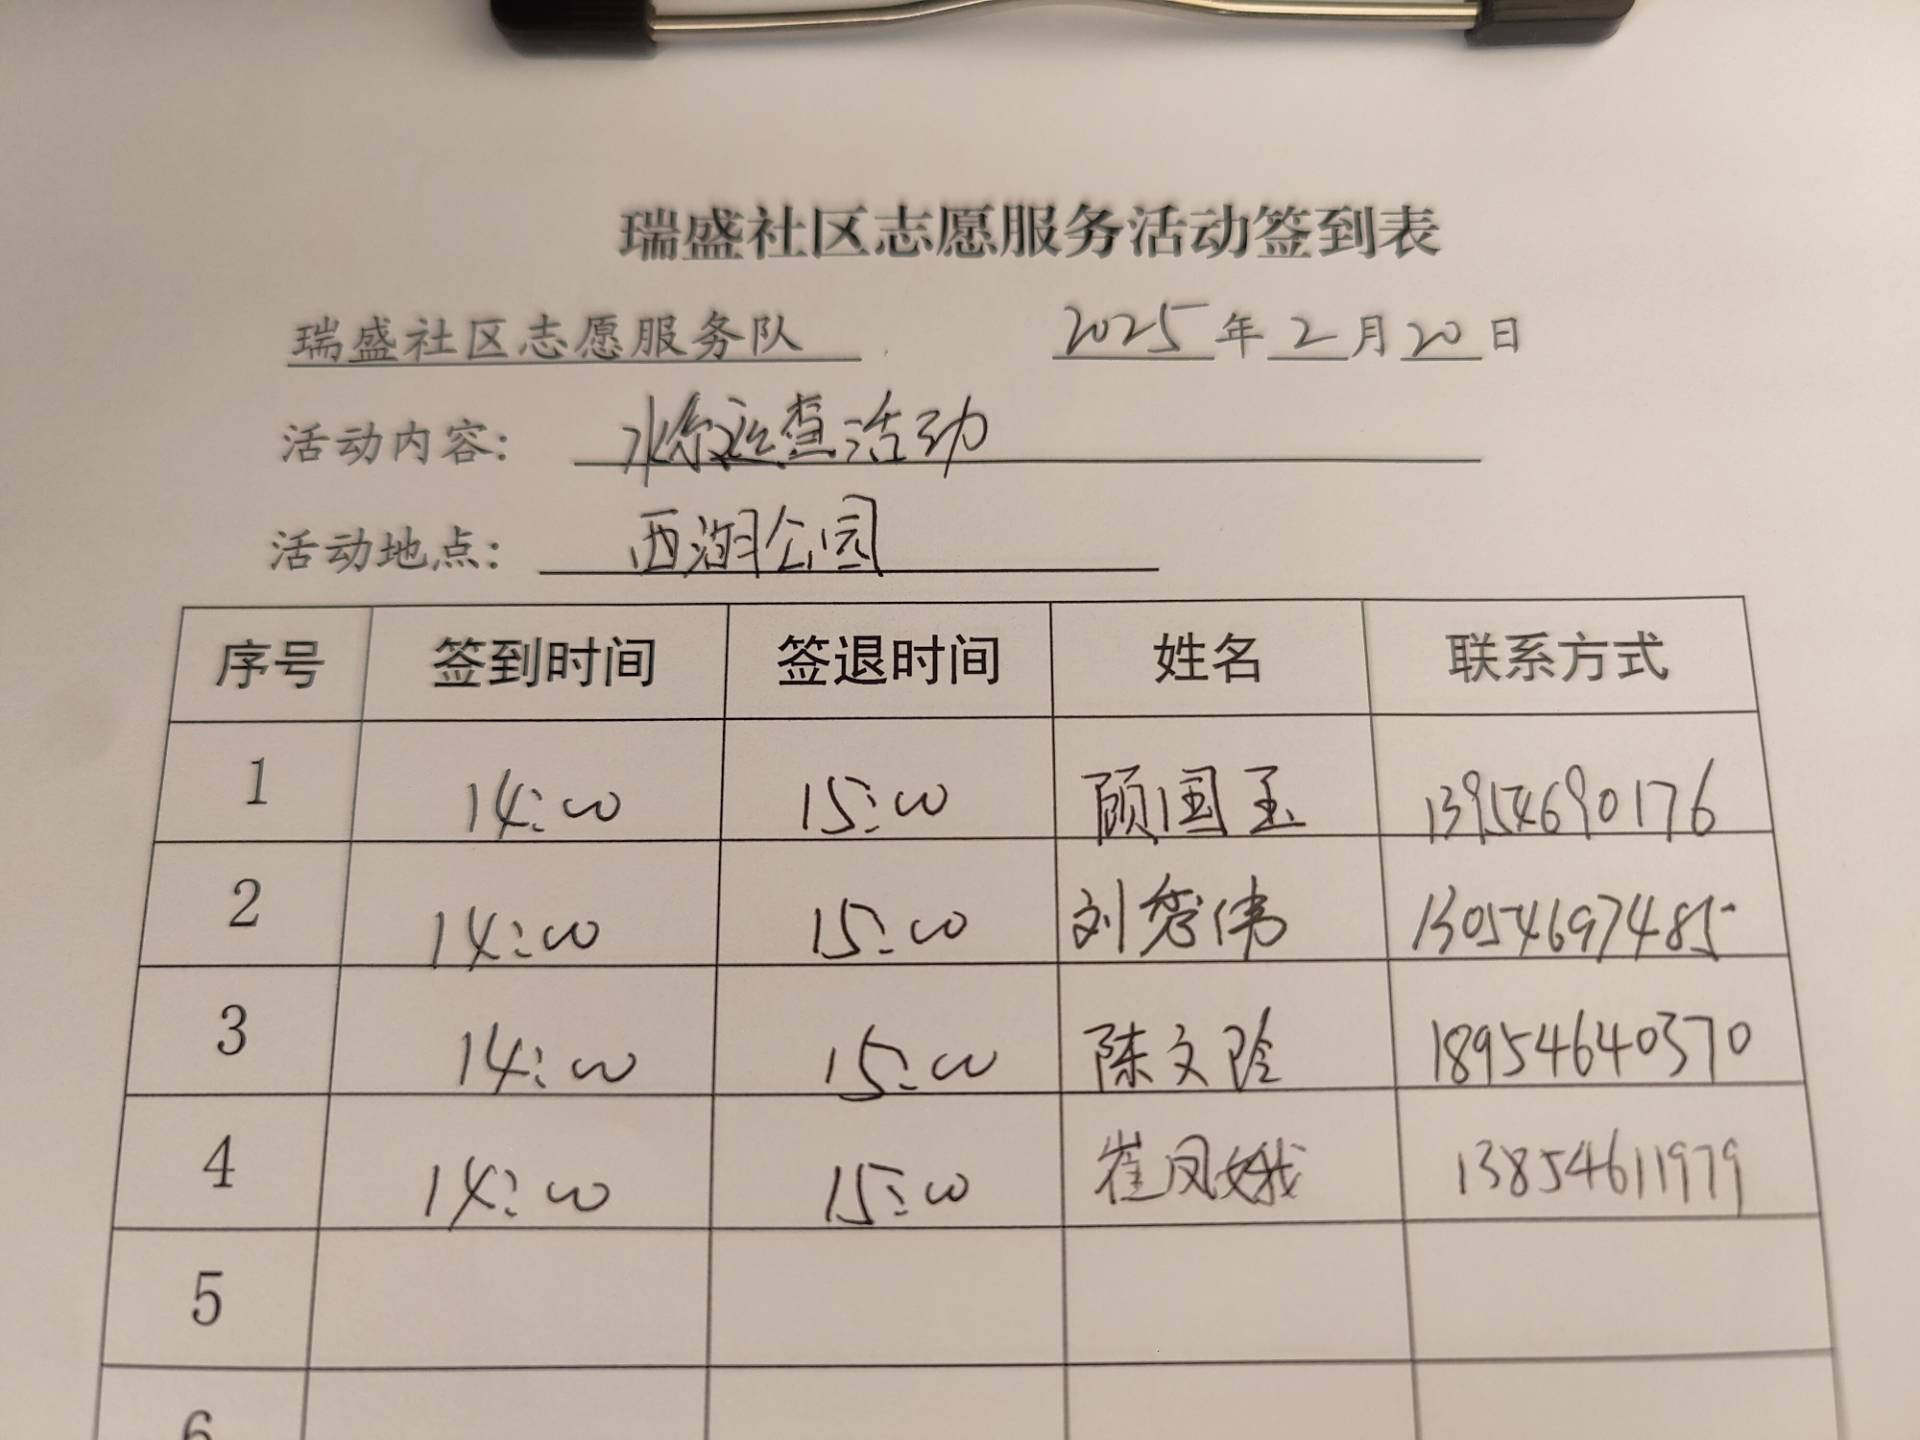 瑞盛社区志愿服务活动签到表
瑞盛社区志愿服务队 2025年2月20日
活动内容: 巡查活动
活动地点: 西湖公园
序号 签到时间 签退时间 姓名 联系方式
1 14:00 15:00 顾国玉 13954690176
2 14:00 15:00 刘秀伟 13054697485
3 14:00 15:00 陈文玲 18954640370
4 14:00 15:00 崔凤娥 13854611979
5
6